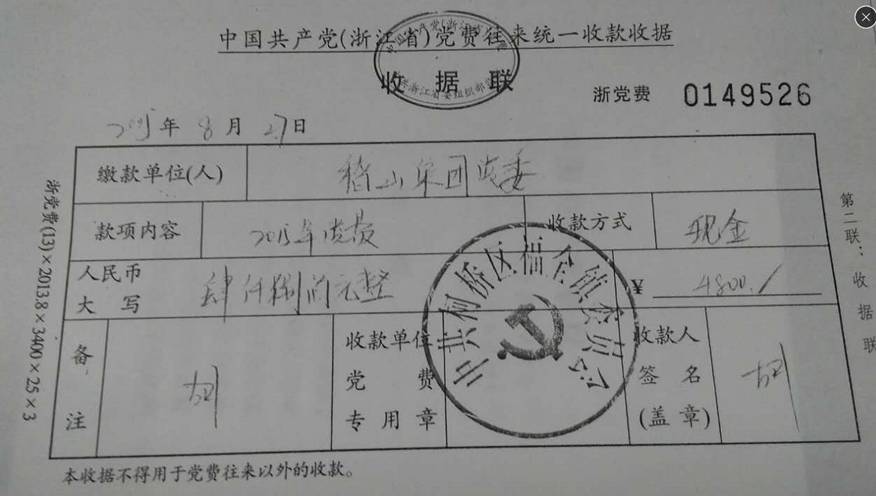 中国共产党(浙江省)党费往来统一收款收据
收据联
浙党费 0149526
2015年8月27日
缴款单位(人) 稽山集团党委
款项内容 2015年党费 收款方式 现金
人民币
大写 肆仟捌佰元整 ¥ 4800.
备注
收款单位
党费
专用章
收款人
签名
(盖章)
中共柯桥区福全镇委员会
本收据不得用于党费往来以外的收款。
浙党费(13)×2013.8×3400×25×3
第二联:收据联